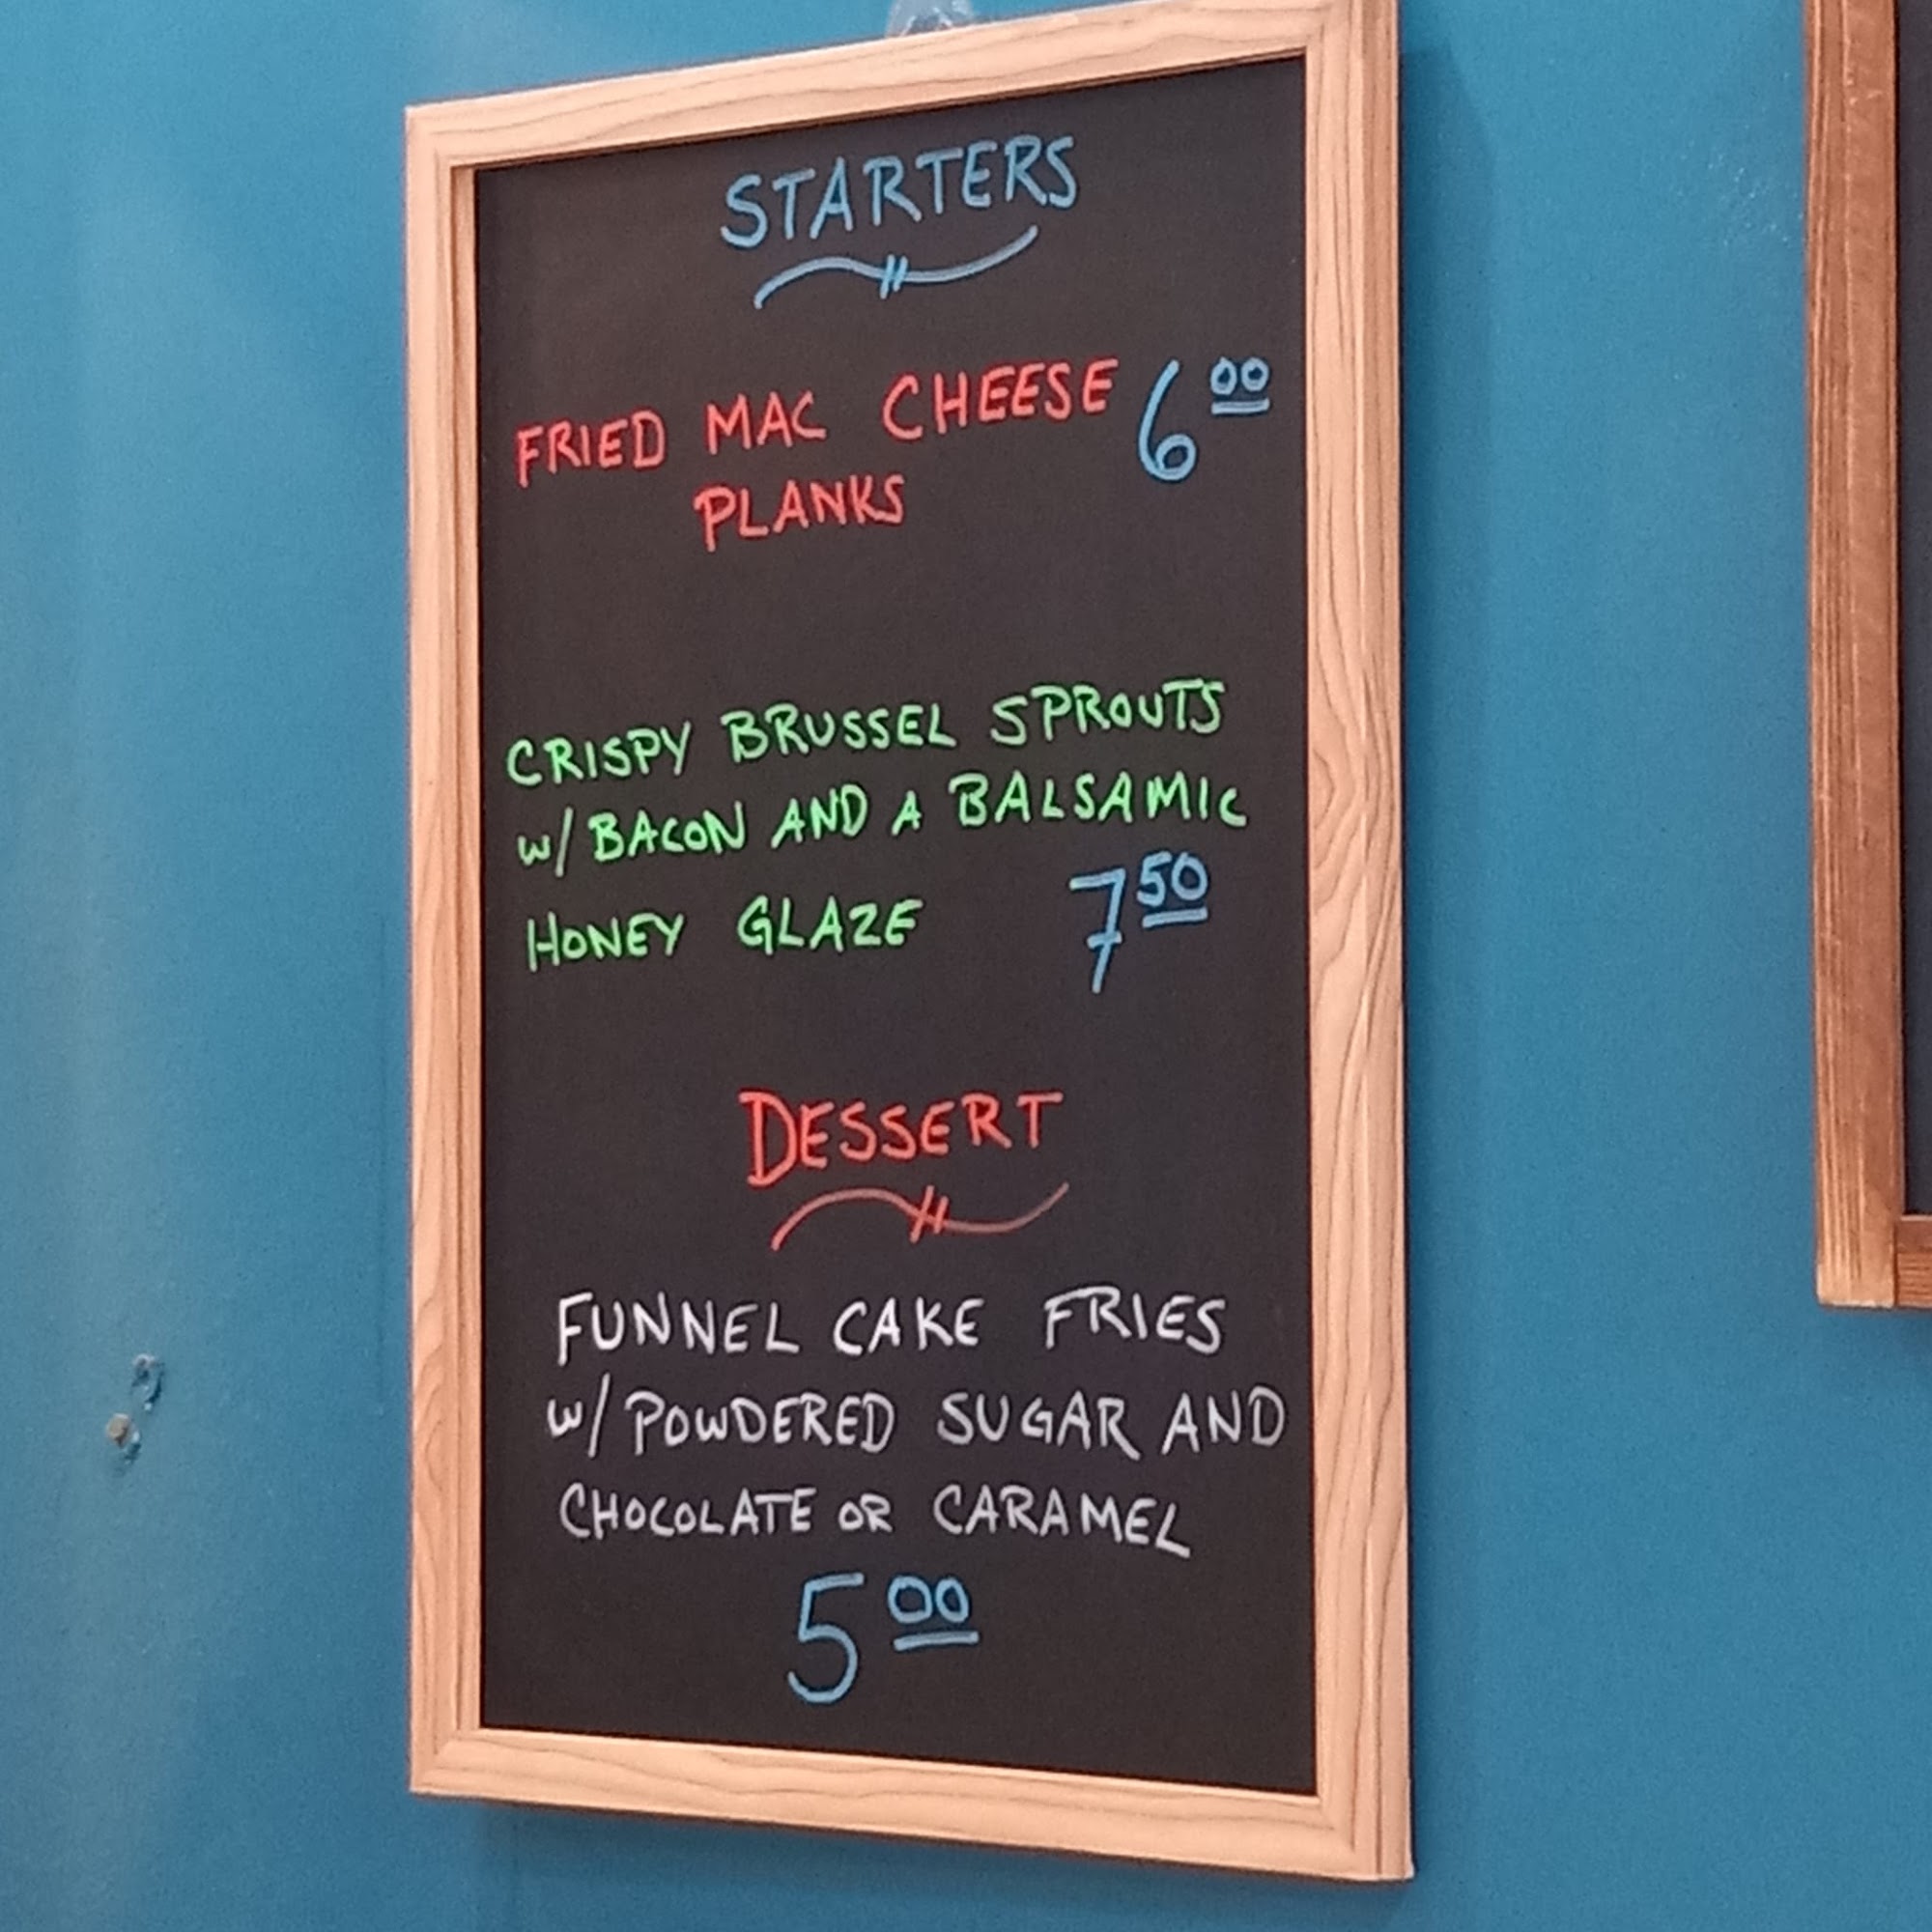 STARTERS
FRIED MAC CHEESE 6 00
PLANKS
CRISPY BRUSSEL SPROUTS
w/ BACON AND A BALSAMIC
HONEY GLAZE 7 50
DESSERT
FUNNEL CAKE FRIES
w/ POWDERED SUGAR AND
CHOCOLATE OR CARAMEL
5 00